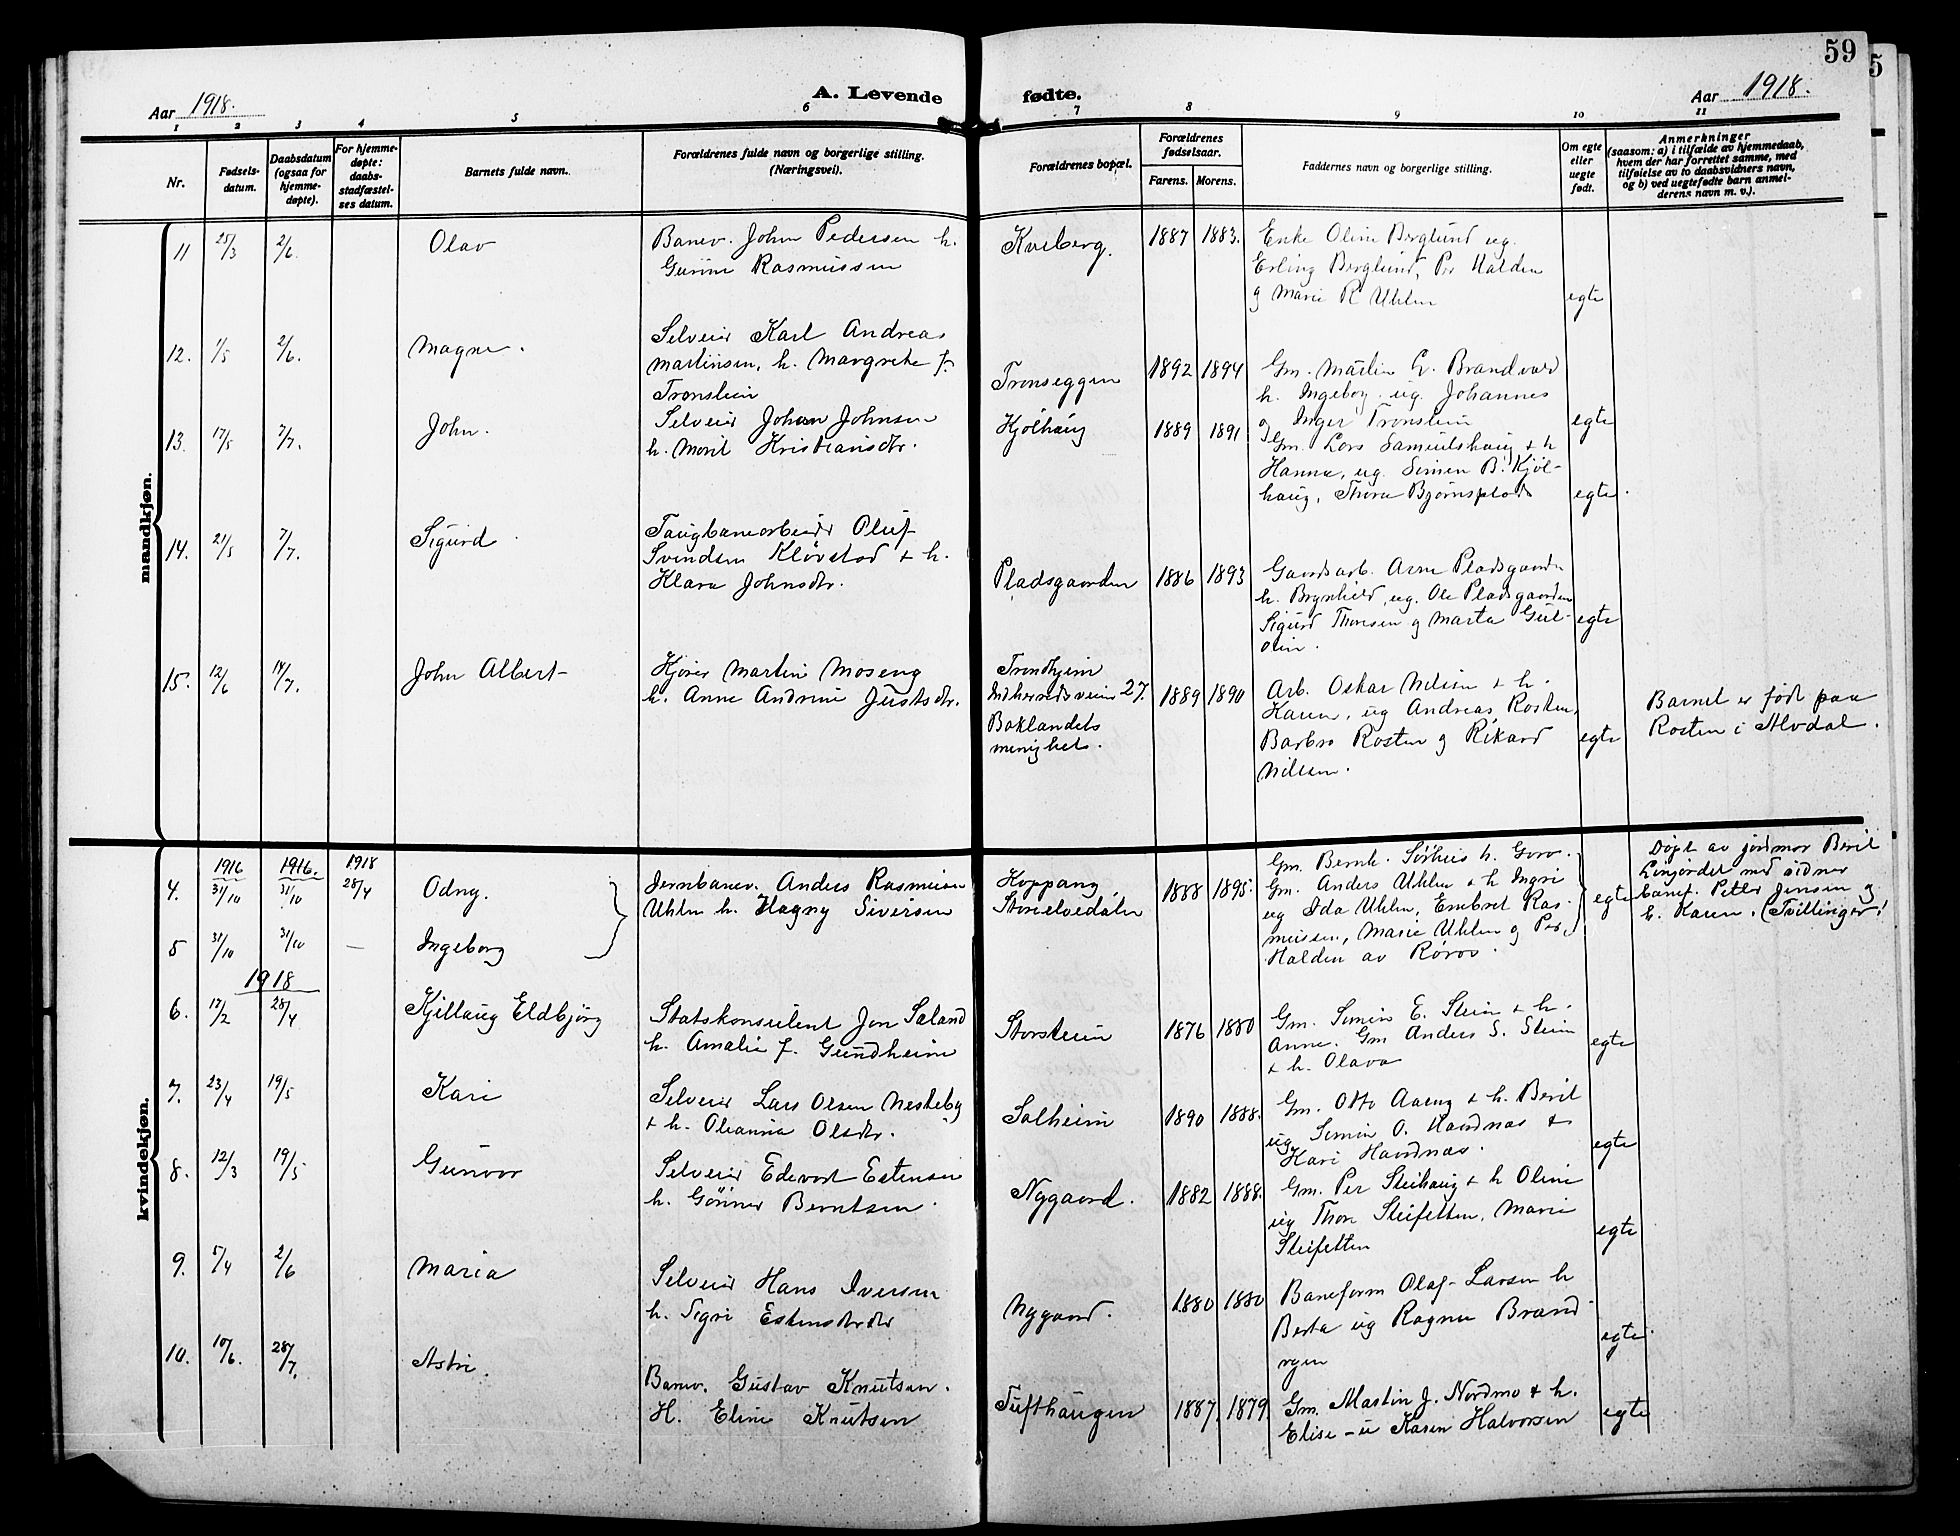 59
5
Aar 1918.
A. Levende fødte.
Aar 1918.
1 2 3 4 5 6 7 8 9 10 11
Nr.
Fødsels-
datum.
Daabsdatum
(ogsaa for
hjemme-
døpte).
For hjemme-
døpte:
daabs-
stadfæstel-
ses datum.
Barnets fulde navn.
Forældrenes fulde navn og borgerlige stilling.
(Næringsvei).
Forældrenes bopæl.
Forældrenes
fødselsaar.
Farens. Morens.
Faddernes navn og borgerlige stilling.
Om egte
eller
uegte
født.
Anmerkninger
(saasom: a) i tilfælde av hjemmedaab,
hvem der har forrettet samme, med
tilføielse av to daabsvidners navn,
og b) ved uegtefødte barn anmel-
derens navn m. v.).
mandkjøn.
11 25/3 2/6. Olav
Banev. John Pedersen h.
Gurine Rasmussen
Kveberg. 1887 1883.
Enke Oline Berglund ug.
Erling Berglund, Per Halden
og Marie R. Uhlen
egte
12. 1/5 2/6. Magne.
Selveier Karl Andreas
Martinsen, h. Margrete f.
Tronslien
Tronseggen 1892 1894
Gm. Martin Brandvold
h. Ingeborg. ug. Johannes
og Inger Tronslien
egte
13. 17/5 7/7. John.
Selveier Johan Johnsen
h. Marit Kristiansdtr.
Kjølhaug 1889 1891
Gm. Lars Samuelshaug & h
Hanna, ug. Simen B. Kjøl-
haug, Thora Bjørnsplads
egte.
14. 21/5 7/7. Sigurd
Taugbanearbeider Oluf
Svendsen Kløvstad & h.
Klara Johnsdtr.
Pladsgaarden 1886 1893
Gaardsarb. Arne Pladsgaarden
h. Brynhild, ug. Ole Pladsgaarden
Sigurd Thoresen og Marta Gul-
olin.
egte
15. 12/6 14/7. John Albert
Kjører Martin Moseng
h. Anne Andrine Justsdtr.
Trondhjem
Indherredsveien 27.
Baklandets
menighet.
1889 1890
Arb. Oskar Nilsen & h.
Karen, ug Andreas Rosten,
Barbro Rosten og Rikard
Nilsen.
egte
Barnet er født paa
Rosten i Alvdal.
kvindekjøn.
1916 1916. 1918
4. 31/10 31/10 28/4 Odny.
Jernbanev. Anders Rasmusen
Uhlen h. Magny Siversen
Koppang
Storelvedalen
1888 1895.
Gm. Bernh. Sørhus h. Goro.
Gm. Anders Uhlen & h Ingri
ug Ida Uhlen, Embret Ras-
mussen, Marie Uhlen og Per
Halden av Røros.
egte
Døpt av jordmor Beret
Linjordet med vidner
banef. Peter Jensen og
h. Karen. (Tvillinger!
5 31/10 31/10 — Ingeborg
1918
6. 17/2 28/4 Kjellaug Eldbjørg
Statskonsulent Jon Sæland
h. Amalie f. Gundheim
Storsteien 1876 1880
Gm. Simen E. Steien & h.
Anne. Gm Anders S. Steien
& h. Olava
egte
7. 23/4 19/5 Kari
Selveier Lars Olsen Neskeby
& h. Oleanna Olsdtr.
Solheim 1890 1888.
Gm. Otto Aaeng & h. Berit
ug Simen O. Haardnæs &
Kari Haardnæs.
egte
8. 12/3 19/5 Gunvor
Selveier Edevart Estensen
h. Gunner Berntsen.
Nygaard. 1882 1888.
Gm. Per Steihaug & h Oline
ug Thore Steifetten, Marie
Steifetten
egte
9. 5/4 2/6 Maria
Selveier Hans Iversen
h. Sigri Estensdtr
Nygaard. 1880 1880
Baneform Olaf Larsen h
Berta ug Ragna Brænd-
vgen
egte
10. 10/6. 28/7. Astri.
Banev. Gustav Knutsen.
H. Eline Knutsen
Tufthaugen 1887 1879.
Gm. Martin J. Nordmo & h.
Elise - u Karen Halvorsen
egte